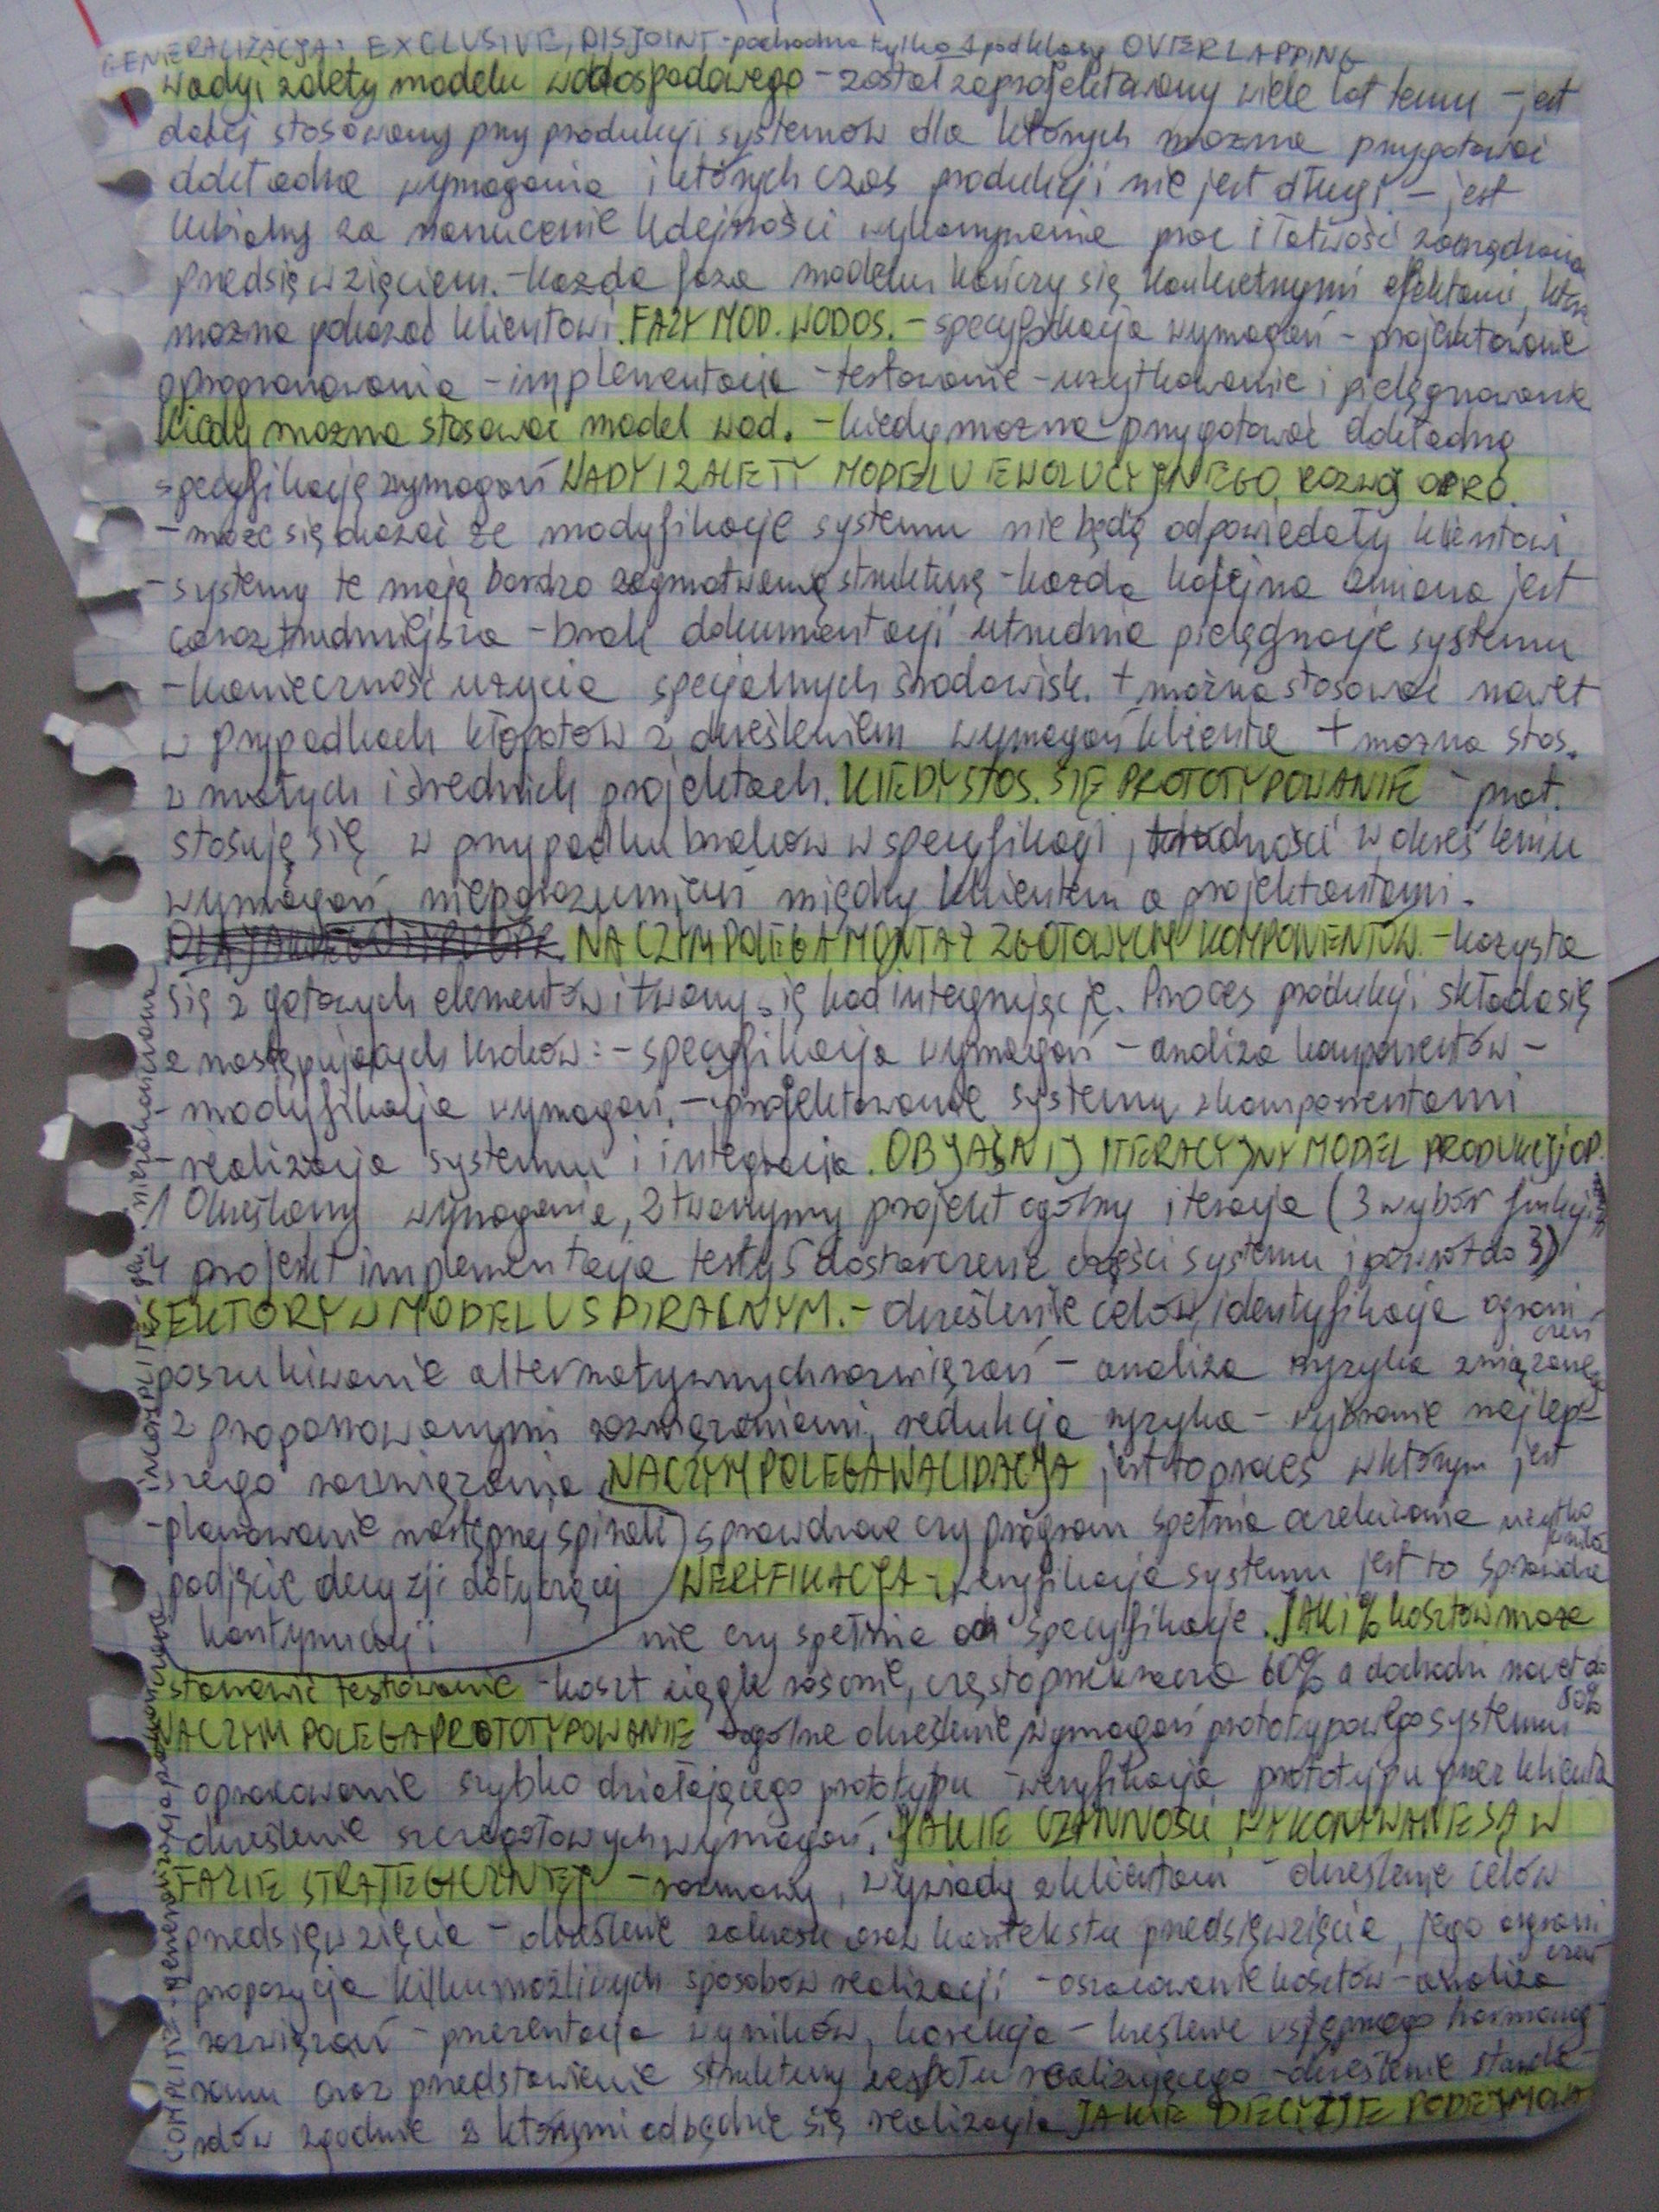 GENERALIZACJA: EXCLUSIVE, DISJOINT - pochodna tylko 1 podklasy OVERLAPPING
Wady i zalety modelu wodospadowego - został zaprojektowany wiele lat temu - jest
dalej stosowany przy produkcji systemów dla których można przygotować
dokładne wymagania i których czas produkcji nie jest długi. - jest
lubiany za narzucenie kolejności wykonywania prac i łatwość zarządzania
przedsięwzięciem. - każda faza modelu kończy się konkretnymi efektami, które
można pokazać klientowi. FAZY MOD. WODOS. - specyfikacja wymagań - projektowanie
oprogramowania - implementacja - testowanie - użytkowanie i pielęgnowanie
Kiedy można stosować model wod. - kiedy można przygotować dokładną
specyfikację wymagań WADY I ZALETY MODELU EWOLUCYJNEGO ROZWOJ OPRO.
- może się okazać że modyfikacje systemu nie będą odpowiadały klientowi
- systemy te mają bardzo zagmatwaną strukturę - każda kolejna zmiana jest
coraz trudniejsza - brak dokumentacji utrudnia pielęgnację systemu
- konieczność użycia specjalnych środowisk. + można stosować nawet
w przypadkach kłopotów z określeniem wymagań klienta + można stos.
w małych i średnich projektach. KIEDY STOS. SIĘ PROTOTYPOWANIE - prot.
stosuję się w przypadku braków w specyfikacji, trudności w określeniu
wymagań, nieporozumień między klientem a projektantami.
NA CZYM POLEGA MONTAŻ Z GOTOWYCH KOMPONENTÓW. - kozysta
się z gotowych elementów i tworzy się kod integrujący je. Proces produkcji składa się
z następujących kroków: - specyfikacja wymagań - analiza komponentów -
- modyfikacja wymagań, - projektowanie systemu z komponentami
- realizacja systemu i integracja. OBJAŚNIJ ITERACYJNY MODEL PRODUKCJI OP.
1 Określamy wymagania, 2 tworzymy projekt ogólny iteracja (3 wybór funkcji
4 projekt implementacja testy 5 dostarczenie części systemu i powrót do 3)
SEKTORY W MODELU SPIRALNYM. - określenie celów, identyfikacja ograni-
czeń
poszukiwanie alternatywnych rozwiązań - analiza ryzyka związanego
z proponowanymi rozwiązaniami, redukcja ryzyka - wybranie najlep-
szego rozwiązania NA CZYM POLEGA WALIDACJA jest to proces w którym jest
- planowanie następnej spirali sprawdzane czy program spełnia oczekiwania użytko
wników
podjęcie decyzji dotyczącej WERYFIKACJA - weryfikacja systemu jest to sprawdze
kontynuacji nie czy spełnia on specyfikacje. JAKI % kosztów może
stanowić testowanie - koszt ciągle rośnie, często przekracza 60% a dochodzi nawet do
80%
NA CZYM POLEGA PROTOTYPOWANIE - ogólne określenie wymagań prototypowego systemu
opracowanie szybko działającego prototypu - weryfikacja prototypu przez klienta
- określenie szczegółowych wymagań. JAKIE CZYNNOŚCI WYKONYWANE SĄ W
FAZIE STRATEGICZNEJ - rozmowy, wywiady z klientem - określenie celów
przedsięwzięcia - określenie zakresu oraz kontekstu przedsięwzięcia, jego ograni
czeń
propozycja kilku możliwych sposobów realizacji - oszacowanie kosztów - analiza
rozwiązań - prezentacja wyników, korekcja - określenie wstępnego harmonog
ramu oraz przedstawienie struktury zespołu realizującego - określenie standa-
rdów zgodnie z którymi odbędzie się realizacja JAKIE DECYZJE PODEJMOWA
COMPLITE - generalizacja zakończona
INCOMPLITE - gen. niezakończona